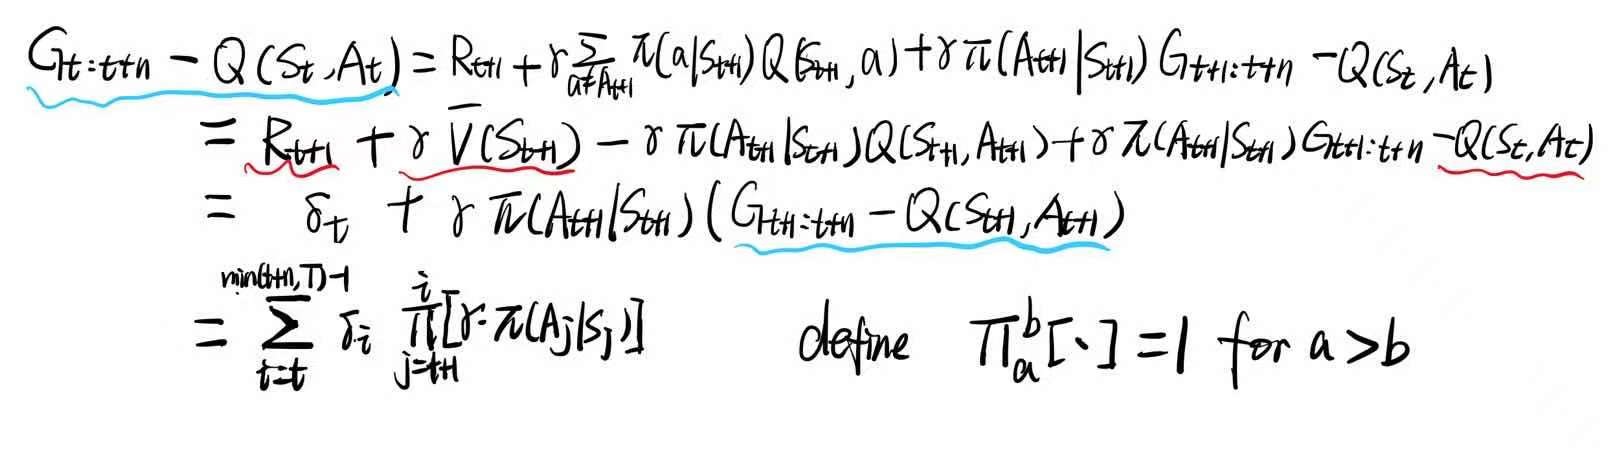 G_{t:t+n} - Q(S_t, A_t) = R_{t+1} + γ Σ_{a≠A_{t+1}} π(a|S_{t+1}) Q(S_{t+1}, a) + γ π(A_{t+1}|S_{t+1}) G_{t+1:t+n} - Q(S_t, A_t)
= R_{t+1} + γ V̄(S_{t+1}) - γ π(A_{t+1}|S_{t+1}) Q(S_{t+1}, A_{t+1}) + γ π(A_{t+1}|S_{t+1}) G_{t+1:t+n} - Q(S_t, A_t)
= δ_t + γ π(A_{t+1}|S_{t+1}) (G_{t+1:t+n} - Q(S_{t+1}, A_{t+1})
= Σ_{i=t}^{min(t+n,T)-1} δ_i Π_{j=t+1}^{i} [γ·π(A_j|S_j)] define Π_a^b [·] = 1 for a > b